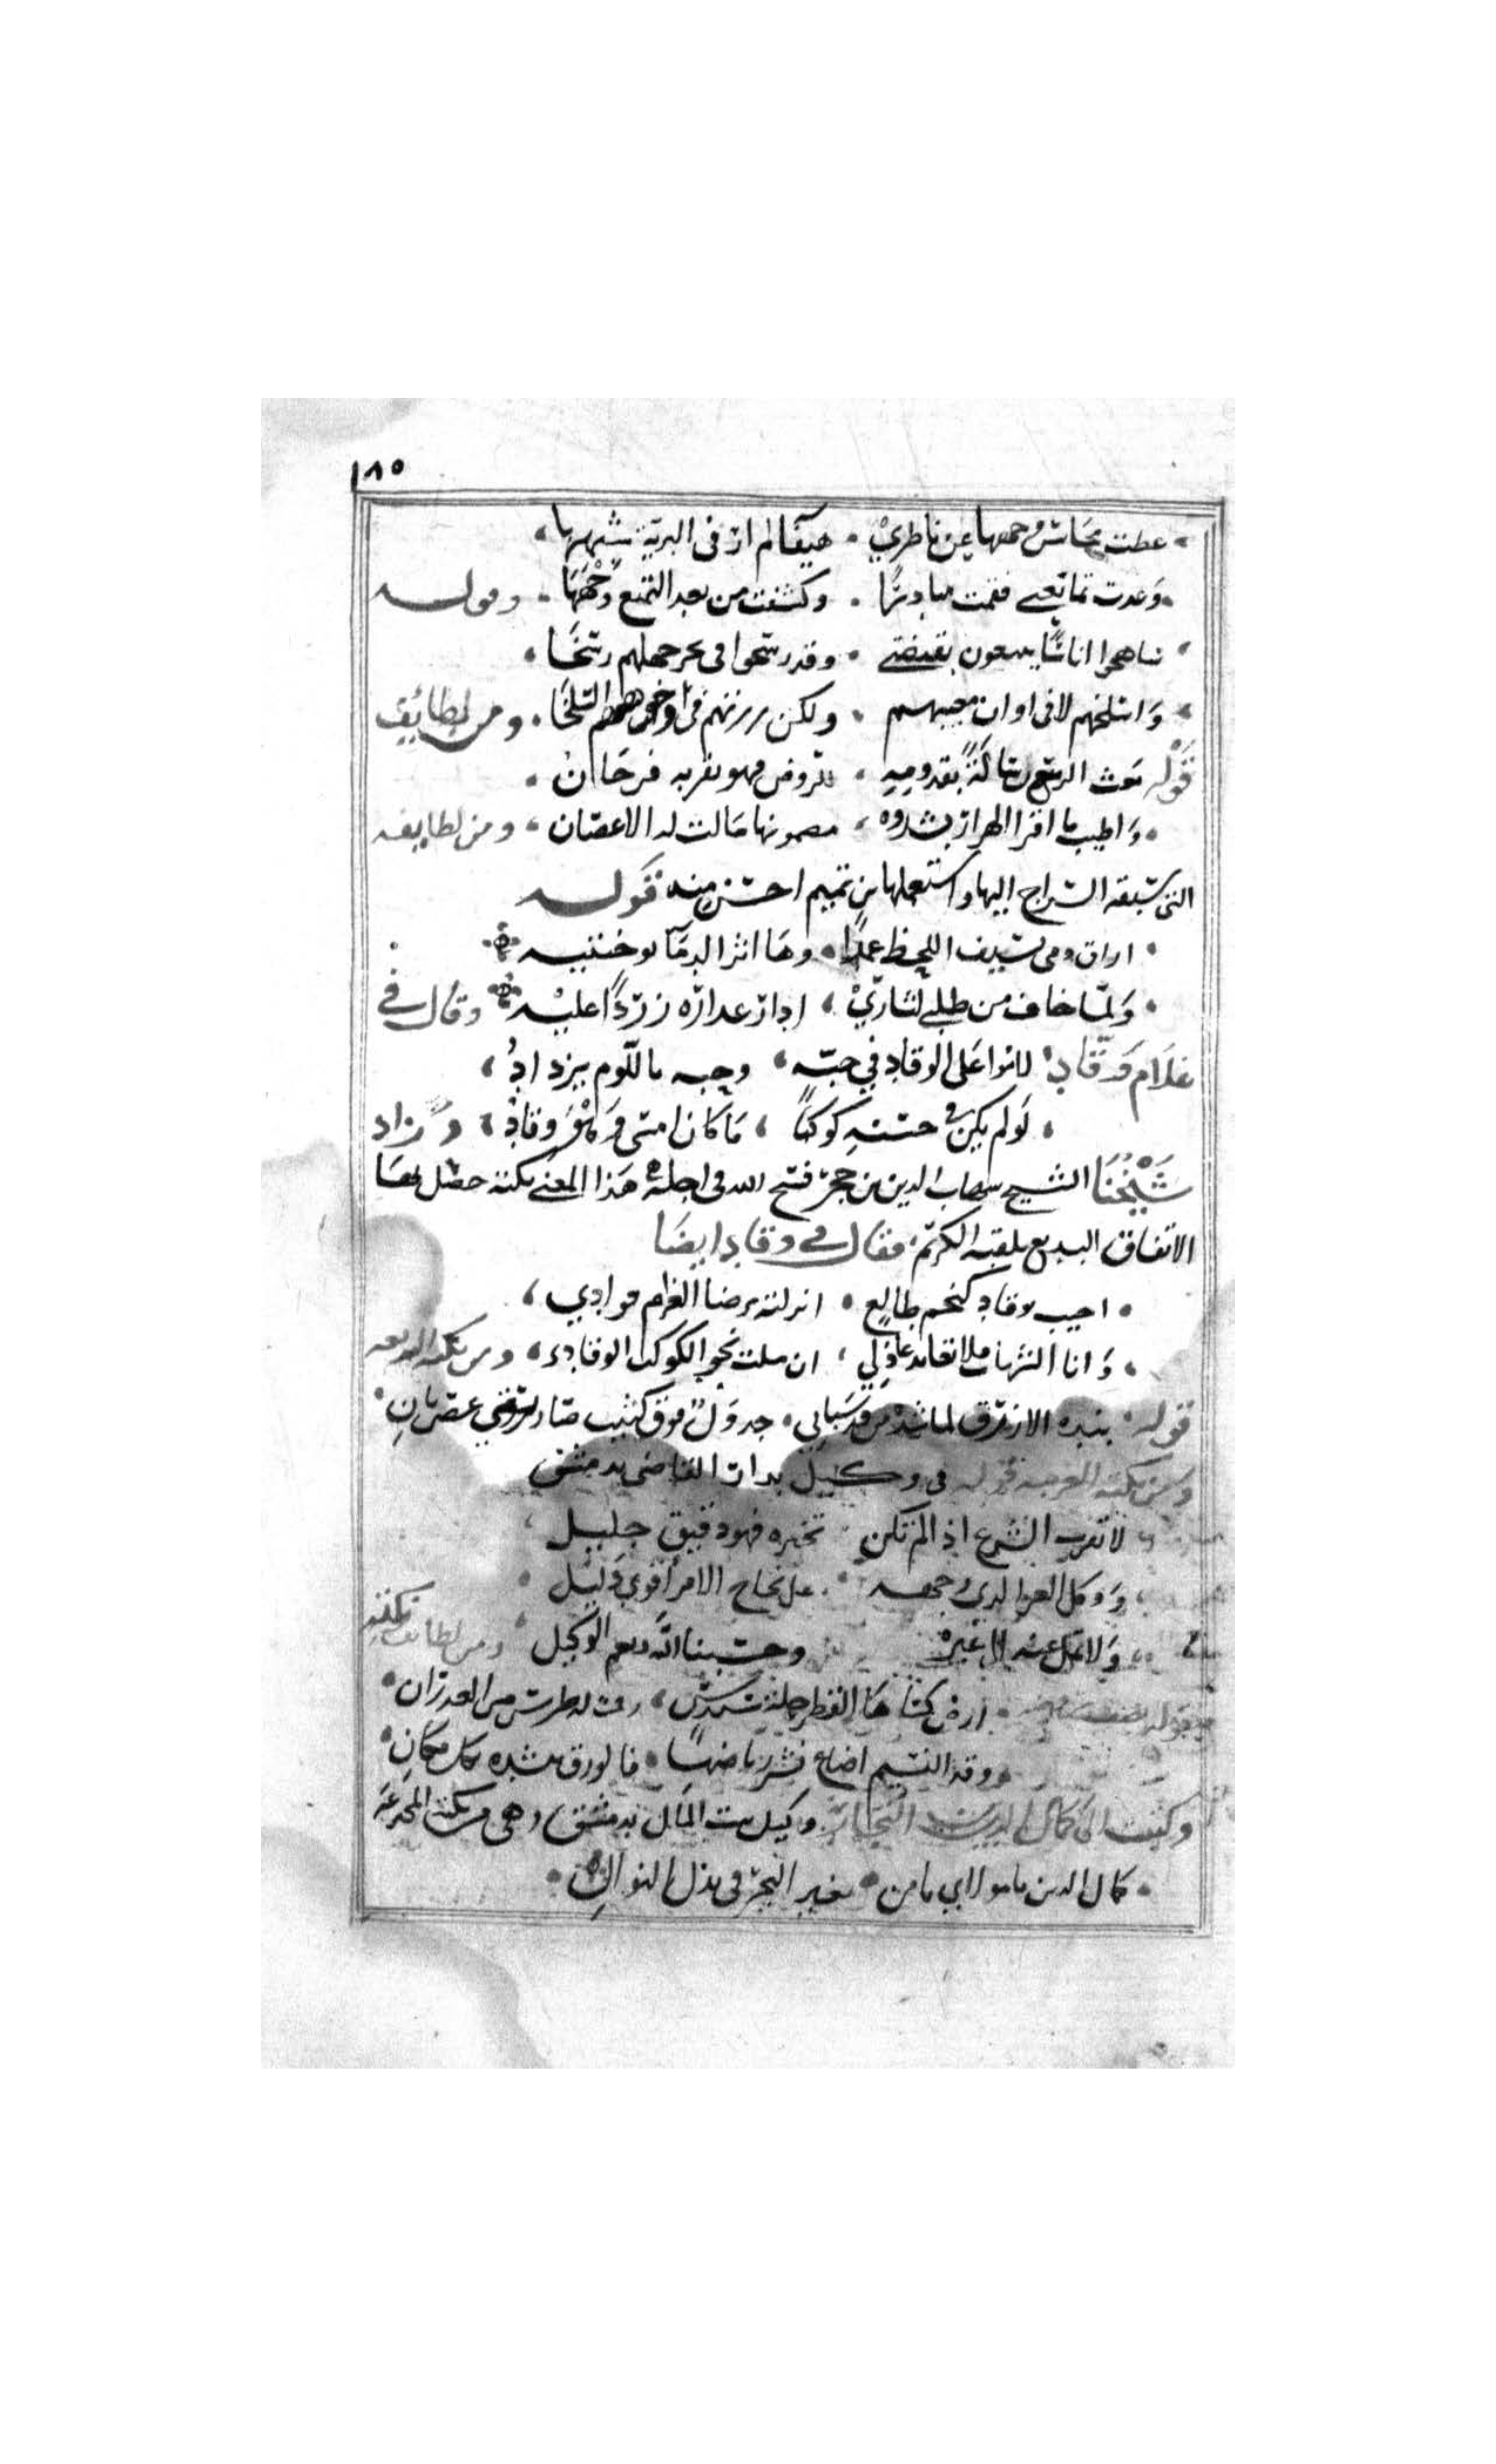 ١٨٥
عطت محاسن وجهها عن ناظري . هيفا لم ار فى البرية شبهها
وعدت تمانعني فقمت مبادرا . وكشفت من بعد التمنع وجهها . وقوله
اناسا يسعون . وقد رسخوا فى بحر جهلهم رسخا
لا فى اوان . ولكن فى . ومن لطايف
قوله بعث الربيع رسالة بقدومه ، للروض فهو بقربه فرحان .
واطيب ما اقرا الهزار بشدوه ، مضمونها مالت له الاغصان ، ومن لطايفه
التى سبقه السراج اليها واستعملها بن تميم احسن منه قوله
اراق دمى بسيف اللحظ عمدا . وها اثر الدما بوجنتيه
ولما خاف من طلبي لثاري ، ادار عذاره زردا عليه وقال في
غلام وقاد لاموا على الوقاد في حبه ، وحبه باللوم يزداد ،
لو لم يكن في حسنه كوكبا ، ما كان امسى وهو وقاد ، وزاد
شيخنا الشيخ شهاب الدين بن حجر فسح الله فى اجله هذا المعنى نكتة حصل بها
الاتفاق البديع بلقبه الكريم فقال في وقاد ايضا
احبب بوقاد كنجم طالع . انزلته برضا الغرام فوادي ،
وانا الشهاب فلا تعاند عاذلي ، ان ملت نحو الكوكب الوقاد ، ومن نكته البديعه
قوله بنده الازرق لما شده من قد سباني . جدول فوق كثيب صار يسقي غصن بان
ومن نكته الغريبه قوله فى وكيل بدار القاضى بدمشق
لا تقرب الشرع اذا لم تكن تخبره فهو دقيق جليل
ووكل العز الذي وجهه على نجاح الامر اقوي دليل
ولا تمل عنه الى غيره وحسبنا الله ونعم الوكيل ومن لطايف نكته
قوله ارض كساها القطر حلة سندس ، رقت له طرر من الغدران
وقد النسيم اضاع نشر رياضها . فالورق تنشده بكل مكان
وكتب الى كمال الدين وكيل بيت المال بدمشق وهي من نكته المخترعه
كمال الدين يا مولاي يا من . يغير البحر فى بذل النوال